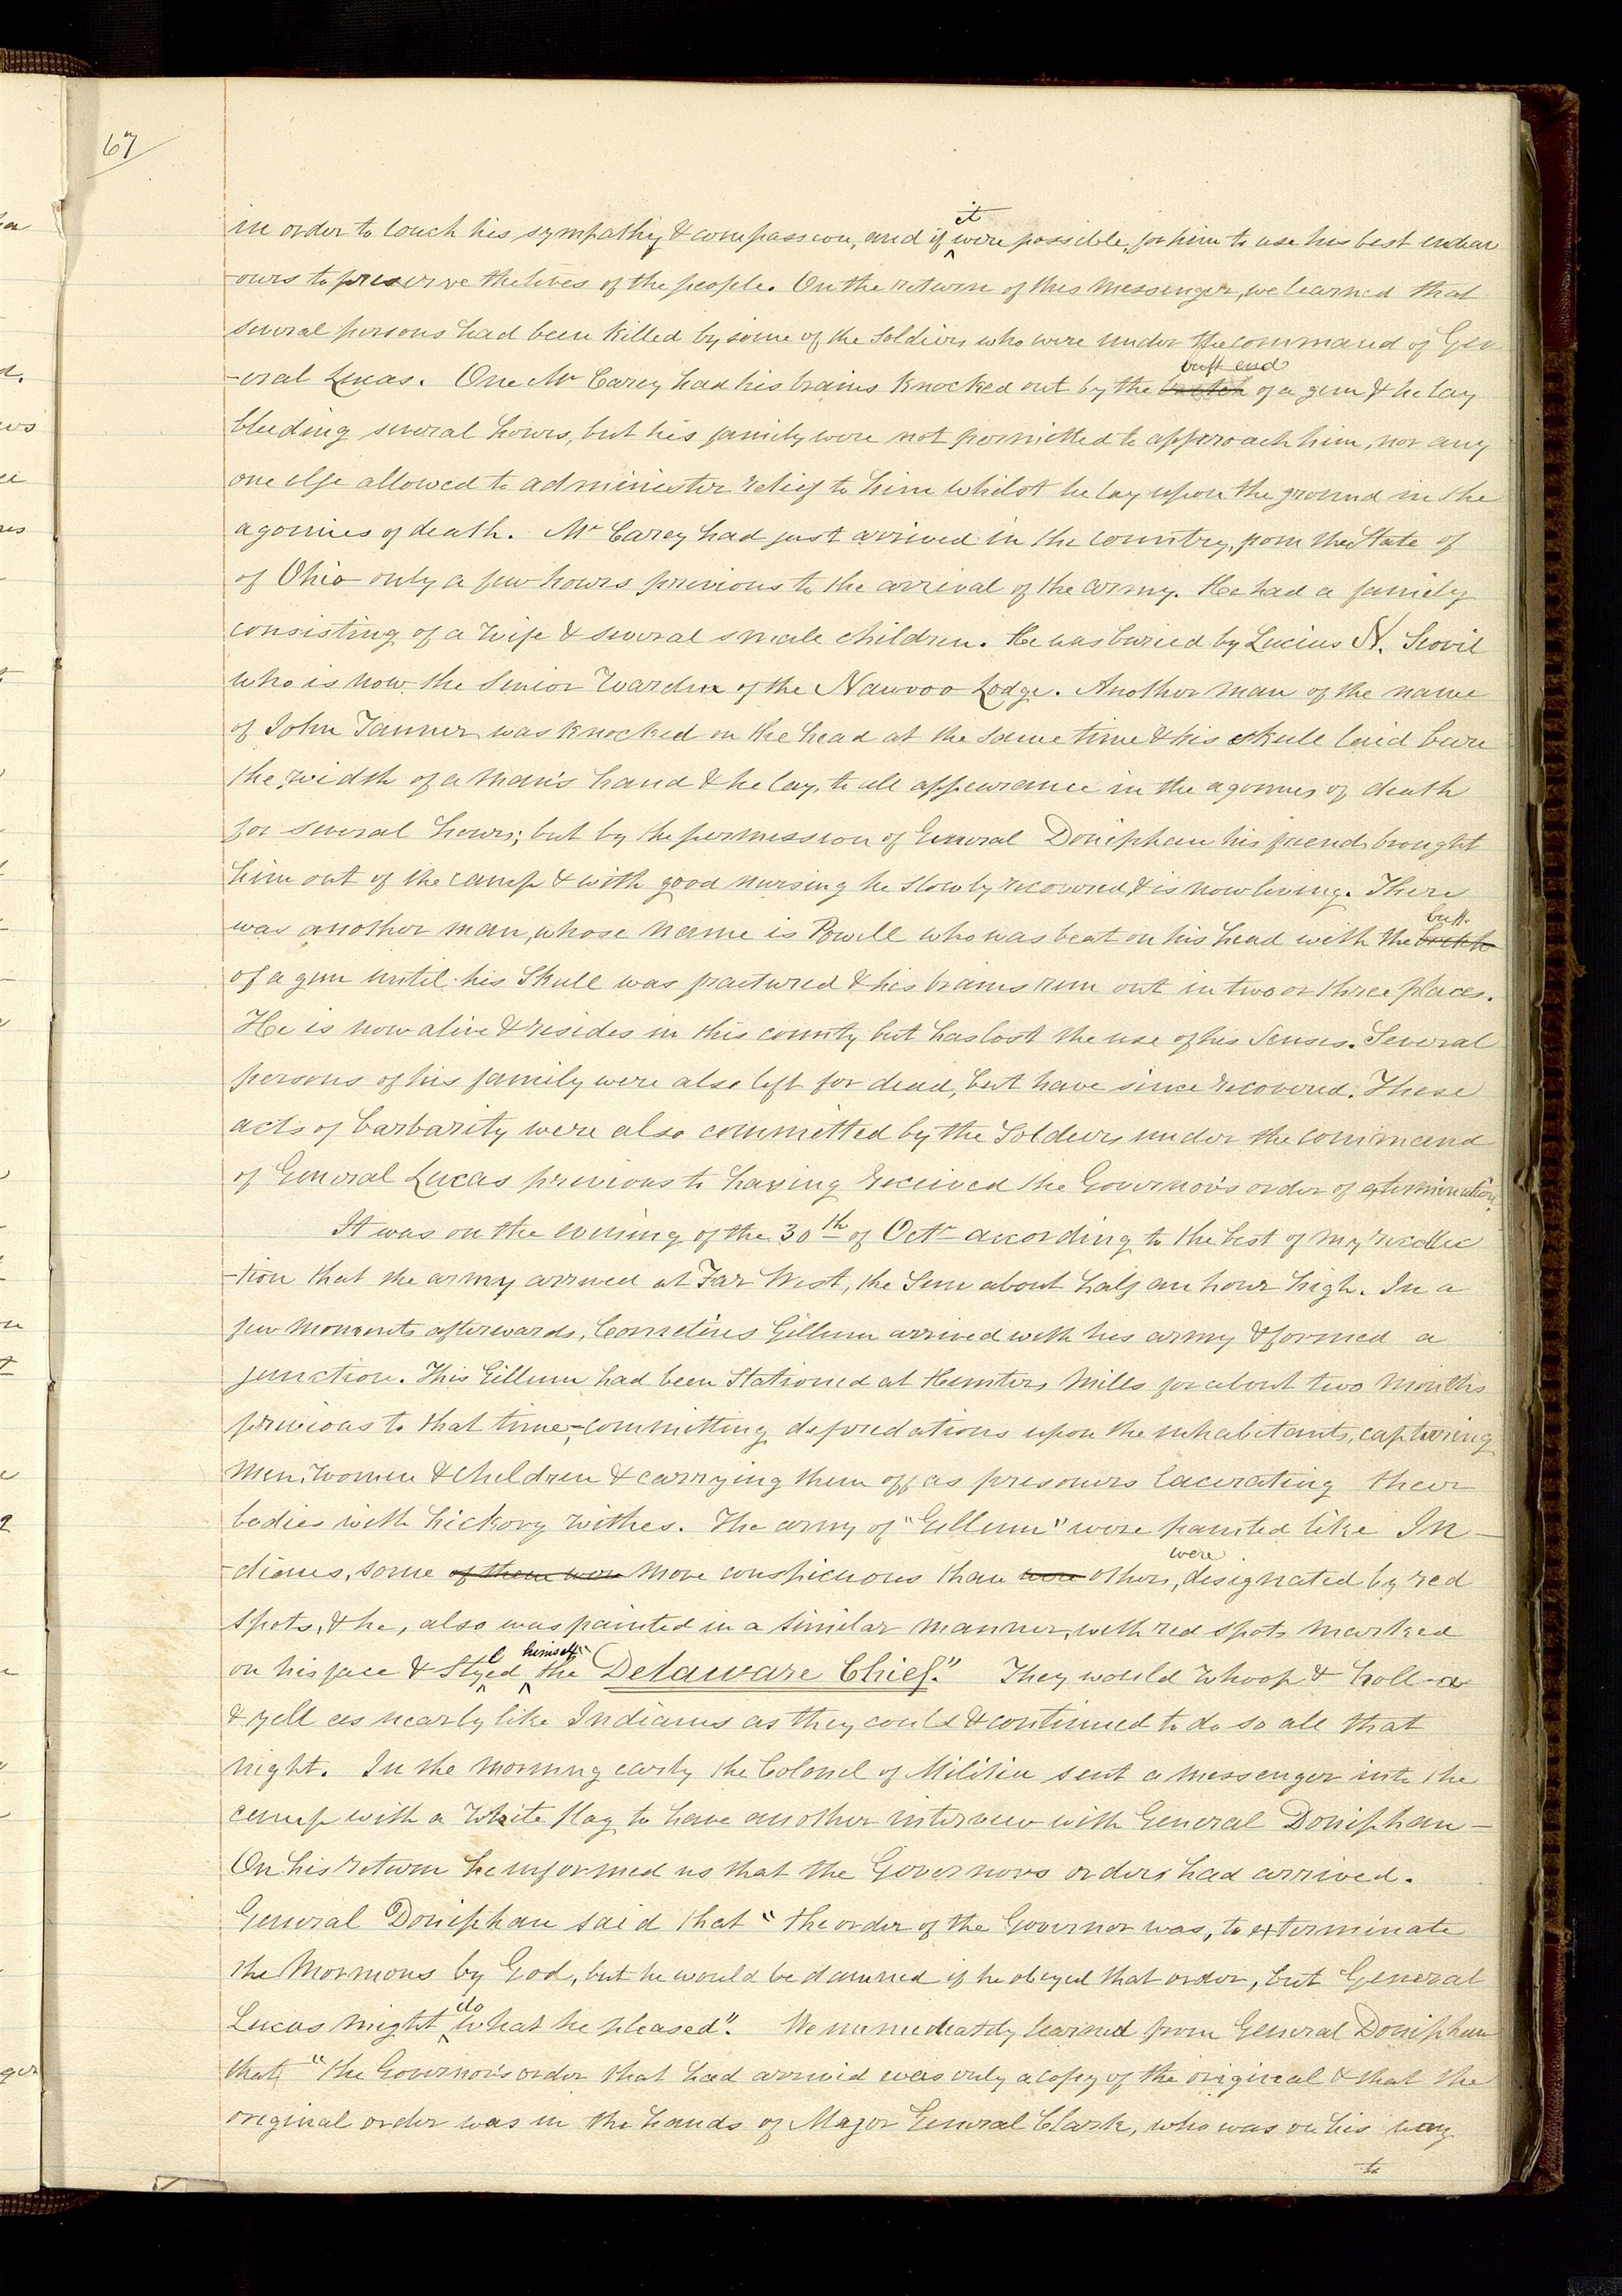 67
in order to touch his sympathy & compassion, and if it were possible, for him to use his best endeav
-ours to preserve the lives of the people. On the return of this messenger, we learned that
several persons had been killed by some of the soldiers who were under the command of Gen
-eral Lucas. One Mr Carey had his brains knocked out by the butt end of a gun & he lay
bleeding several hours, but his family were not permitted to approach him, nor any
one else allowed to administer relief to him whilst he lay upon the ground in the
agonies of death. Mr Carey had just arrived in the country, from the State of
of Ohio only a few hours previous to the arrival of the army. He had a family
consisting of a wife & several small children. He was buried by Lucius N. Scovil
who is now the Senior Warden of the Nauvoo Lodge. Another man of the name
of John Tanner was knocked on the head at the same time & his skull laid bare
the width of a man's hand & he lay, to all appearance in the agonies of death
for several hours; but by the permission of General Doniphan his friends brought
him out of the camp & with good nursing he slowly recovered & is now living. There
was another man, whose name is Powell who was beat on his head with the butt
of a gun until his Skull was fractured & his brains run out in two or three places.
He is now alive & resides in this county but has lost the use of his senses. Several
persons of his family were also left for dead, but have since recovered. These
acts of barbarity were also committed by the Soldiers under the command
of General Lucas previous to having received the Governor's order of extermination.
It was on the evening of the 30th of Octr according to the best of my recollec
-tion that the army arrived at Far West, the Sun about half an hour high. In a
few moments afterwards, Cornelius Gillum arrived with his army & formed a
junction. This Gillum had been stationed at Hunters Mills for about two months
previous to that time, committing depredations upon the inhabitants, capturing
Men, Women & Children & carrying them off as prisoners lacerating their
bodies with hickory withes. The army of "Gillum" were painted like In-
-dians, some of them were more conspicuous than were others, were designated by red
spots, & he, also was painted in a similar manner, with red spots marked
on his face & styled himself the "Delaware Chief." They would Whoop & holl-a
& yell as nearly like Indians as they could & continued to do so all that
night. In the morning early the Colonel of Militia sent a messenger into the
camp with a white flag to have another interview with General Doniphan -
On his return he informed us that the Governors orders had arrived.
General Doniphan said that "the order of the Governor was, to exterminate
the Mormons by God, but he would be damned if he obeyed that order, but General
Lucas might do what he pleased". We immediately learned from General Doniphan
that "the Governor's order that had arrived was only a copy of the original & that the
original order was in the hands of Major General Clark, who was on his way
to